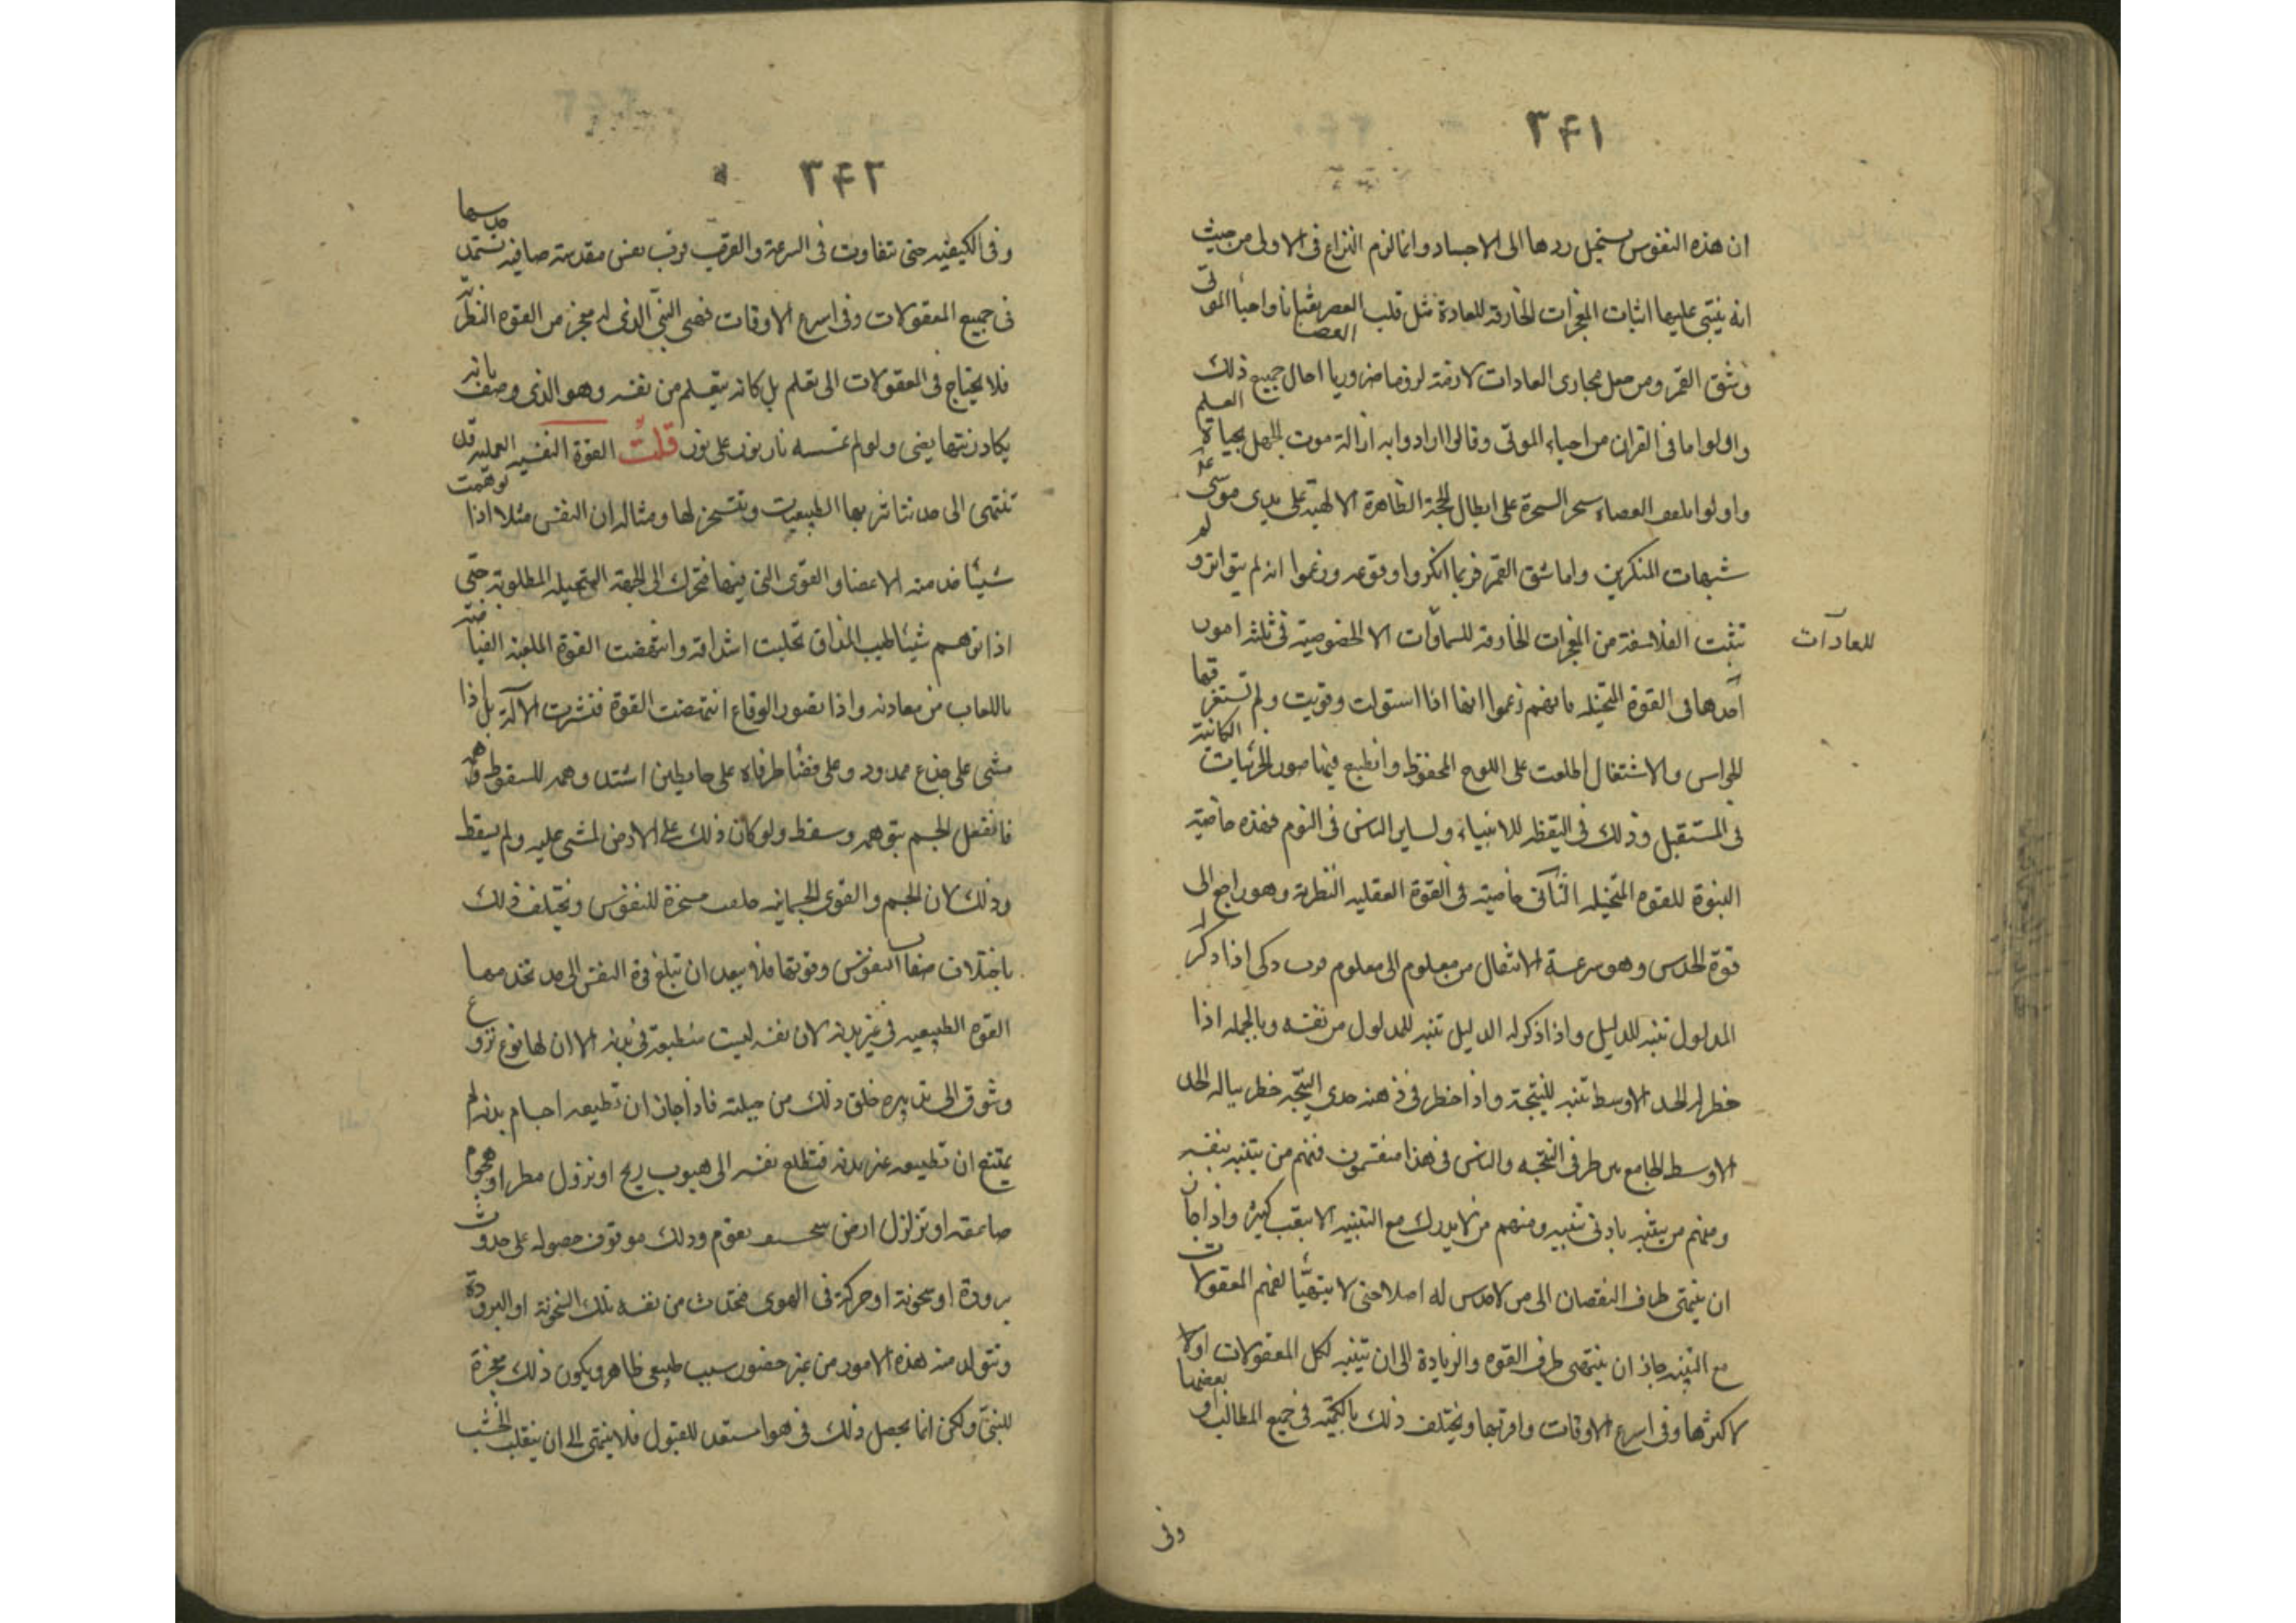 ٣٤١
ان هذه النفوس يستحيل ردها الى الاجساد وانما لزم النزاع فى الاولى من حيث
انه ينبتى عليها اثبات المعجزات الخارقة للعادة مثل قلب العصا ثعبانا واحياء الموتى
العصا
وشق القمر ومن جعل مجارى العادات لازمة لزوما ضروريا احال جميع ذلك
واولوا ما فى القران من احياء الموتى وقالوا اراد وابه ازالة موت الجهل بحياة العلم
واولوا تلقف العصاء سحر السحرة على ابطال الحجة الظاهرة الالهية على يدى موسى
شبهات المنكرين واما شق القمر فربما انكروا وقوعه وزعموا انه لم يتواتر ولم
تثبت الفلاسفة من المعجزات الخارقة للسماوات الا لخصوصية فى ثلثة امور
للعادات
احدها فى القوة المتخيله فانهم زعموا انها اذا استولت وقويت ولم تستغرقها
الحواس والاشتغال اطلعت على اللوح المحفوظ وانطبع فيها صور الجزئيات الكائنة
فى المستقبل وذلك فى اليقظه للانبياء ولساير الناس فى النوم فهذه خاصية
النبوة للقوه المتخيله الثانى خاصية فى القوة العقليه النظرية وهو راجع الى
قوة الحدس وهو سرعة الانتقال من معلوم الى معلوم فرب ذكى اذا ذكر له
المدلول تنبه للدليل واذا ذكر له الدليل تنبه للمدلول من نفسه وبالجمله اذا
خطر له الحد الاوسط تنبه للنتيجة واذا خطر فى ذهنه حدى النتيجه خطر بباله الحد
الاوسط الجامع بين طرفى النتيجه والناس فى هذا منقسمون فمنهم من يتنبه بنفسه
ومنهم من يتنبه بادنى تنبيه ومنهم من لا يدرك مع التنبيه الا بتعب كثير واذا جاز
ان ينتهى طرف النقصان الى من لا حدس له اصلا حتى لا يتهيأ لفهم المعقولات
مع التنبيه جاز ان ينتهى طرف القوه والزيادة الى ان يتنبه لكل المعقولات اولا
لاكثرها وفى اسرع الاوقات واقربها ويختلف ذلك بالكميه فى جميع المطالب او بعضها
وفى
٣٤٢
وفى الكيفيه حتى تتفاوت فى السرعة والقرب فرب نفس مقدسة صافيه تستمر حدسها
فى جميع المعقولات وفى اسرع الاوقات فهى النبى الذى له معجز من القوه النظريه
فلا يحتاج فى المعقولات الى تعلم بل كانه يتعلم من نفسه وهو الذى وصف بانه
يكاد زيتها يضى ولو لم تمسسه نار نور على نور قلت القوة النفسيه العمليه قد
تنتهى الى حد تتاثر بها الطبيعيات وتتسخر لها ومثاله ان النفس مثلا اذا توهمت
شيئا خدمته الاعضا والقوى التى فيها فتحرك الى الجهة المتخيله المطلوبة حتى
اذا توهم شيئا طيب المذاق تحلبت اشداقه وانتهضت القوة الملعبة الفياضة
باللعاب من معادنه واذا تصور الوقاع انتهضت القوة فنشرت الآلة بل اذا
مشى على جذع ممدود وعلى فضا طرفاه على حايطين اشتد وهمه للسقوط
فانفعل الجسم بتوهمه وسقط ولو كان ذلك على الارض لمشى عليه ولم يسقط
وذلك لان الجسم والقوى الجسمانيه خلقت مسخرة للنفوس ويختلف ذلك
باختلاف صفاء النفوس وقوتها فلا يبعد ان تبلغ قوة النفس الى حد تخدمها
القوه الطبيعيه فى غير بدنه لان نفسه ليست منطبعة فى بدنه الا ان لها نوع نزوع
وشوق الى تدبيره خلق ذلك من جبلته فاذا جاز ان تطيعه اجسام بدنه لم
يمتنع ان تطيعه غير بدنه فتطلع نفسه الى هبوب ريح او نزول مطر او هجوم
صاعقه او تزلزل ارض بقوم وذلك موقوف حصوله على حدوث
برودة او سخونة او حركة فى الهوى فتحدث من نفسه تلك السخونة او البرودة
وتتولد منه هذه الامور من غير حضور سبب طبيعى ظاهر ويكون ذلك معجزة
للنبى ولكن انما يحصل ذلك فى هوا مستعد للقبول فلا ينتهى الى ان ينقلب الخشب